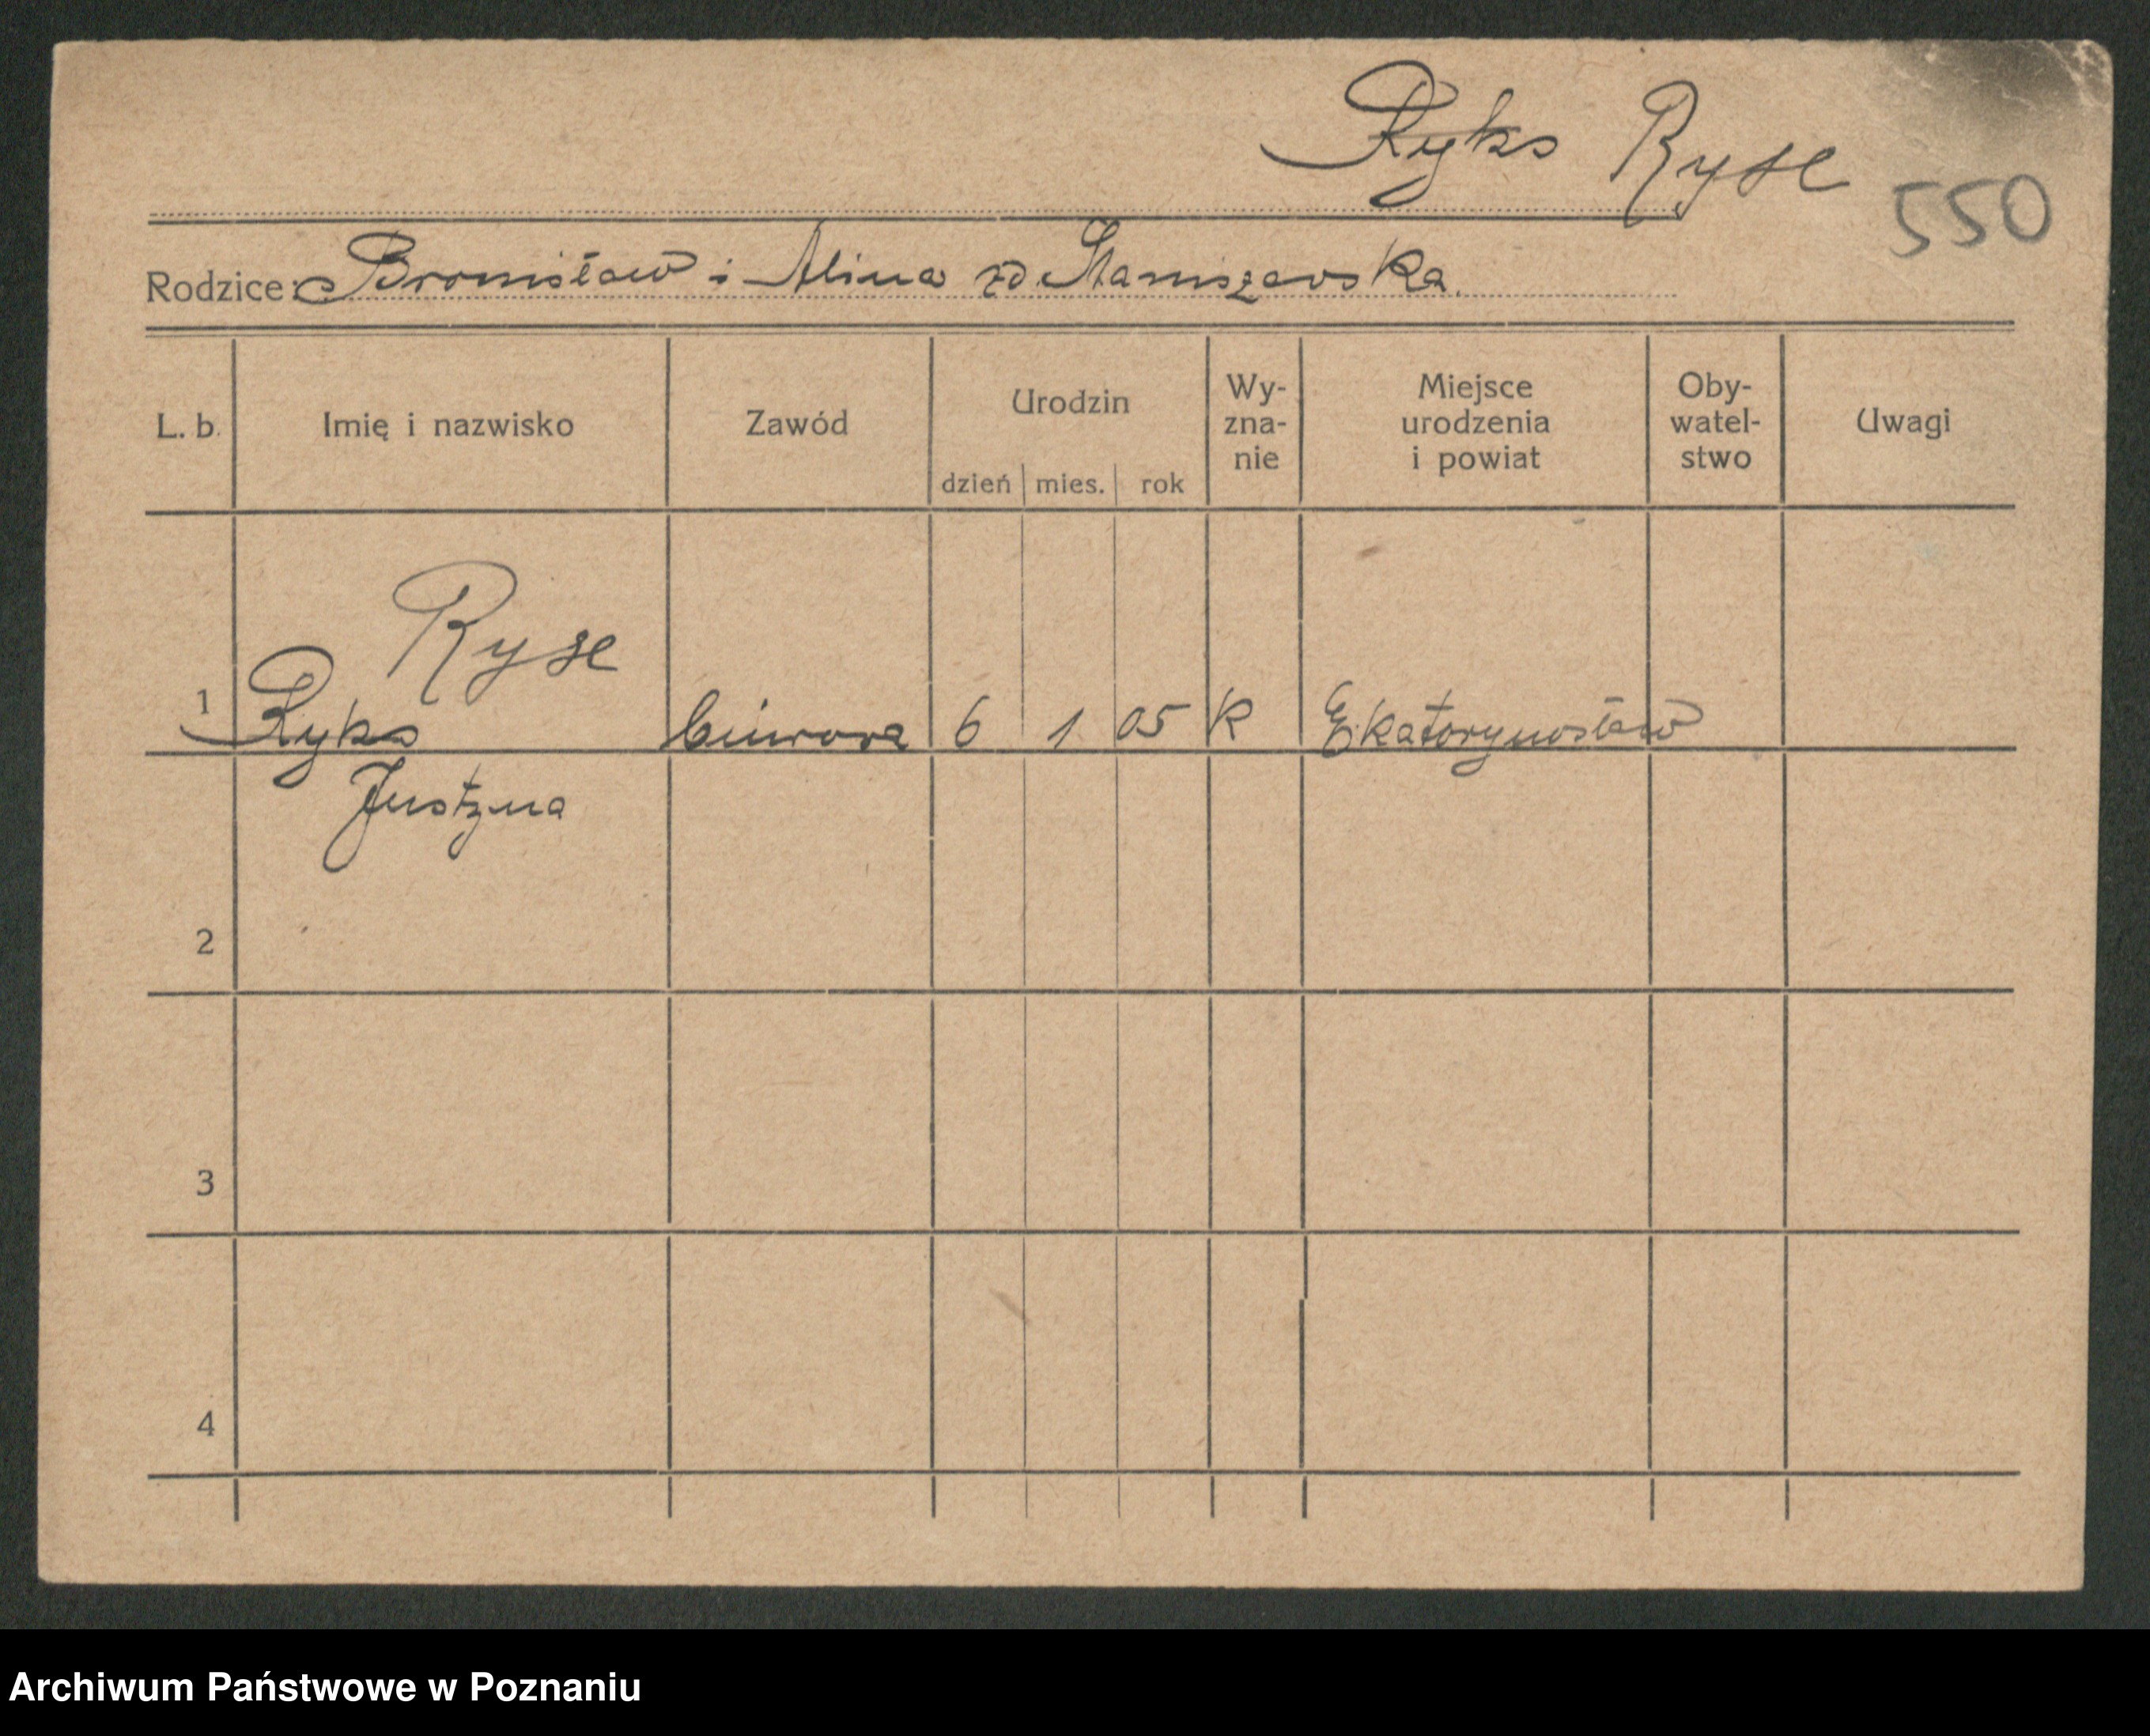 Ryks Ryse
550
Rodzice: Bronisław i Alina zd Staniszevska.
L. b. Imię i nazwisko Zawód Urodzin dzień mies. rok Wy-zna-nie Miejsce urodzenia i powiat Oby-watel-stwo Uwagi
Ryse
1 Ryks biurova 6 1 05 K Ekatorynosław
Justyna
2
3
4
Archiwum Państwowe w Poznaniu